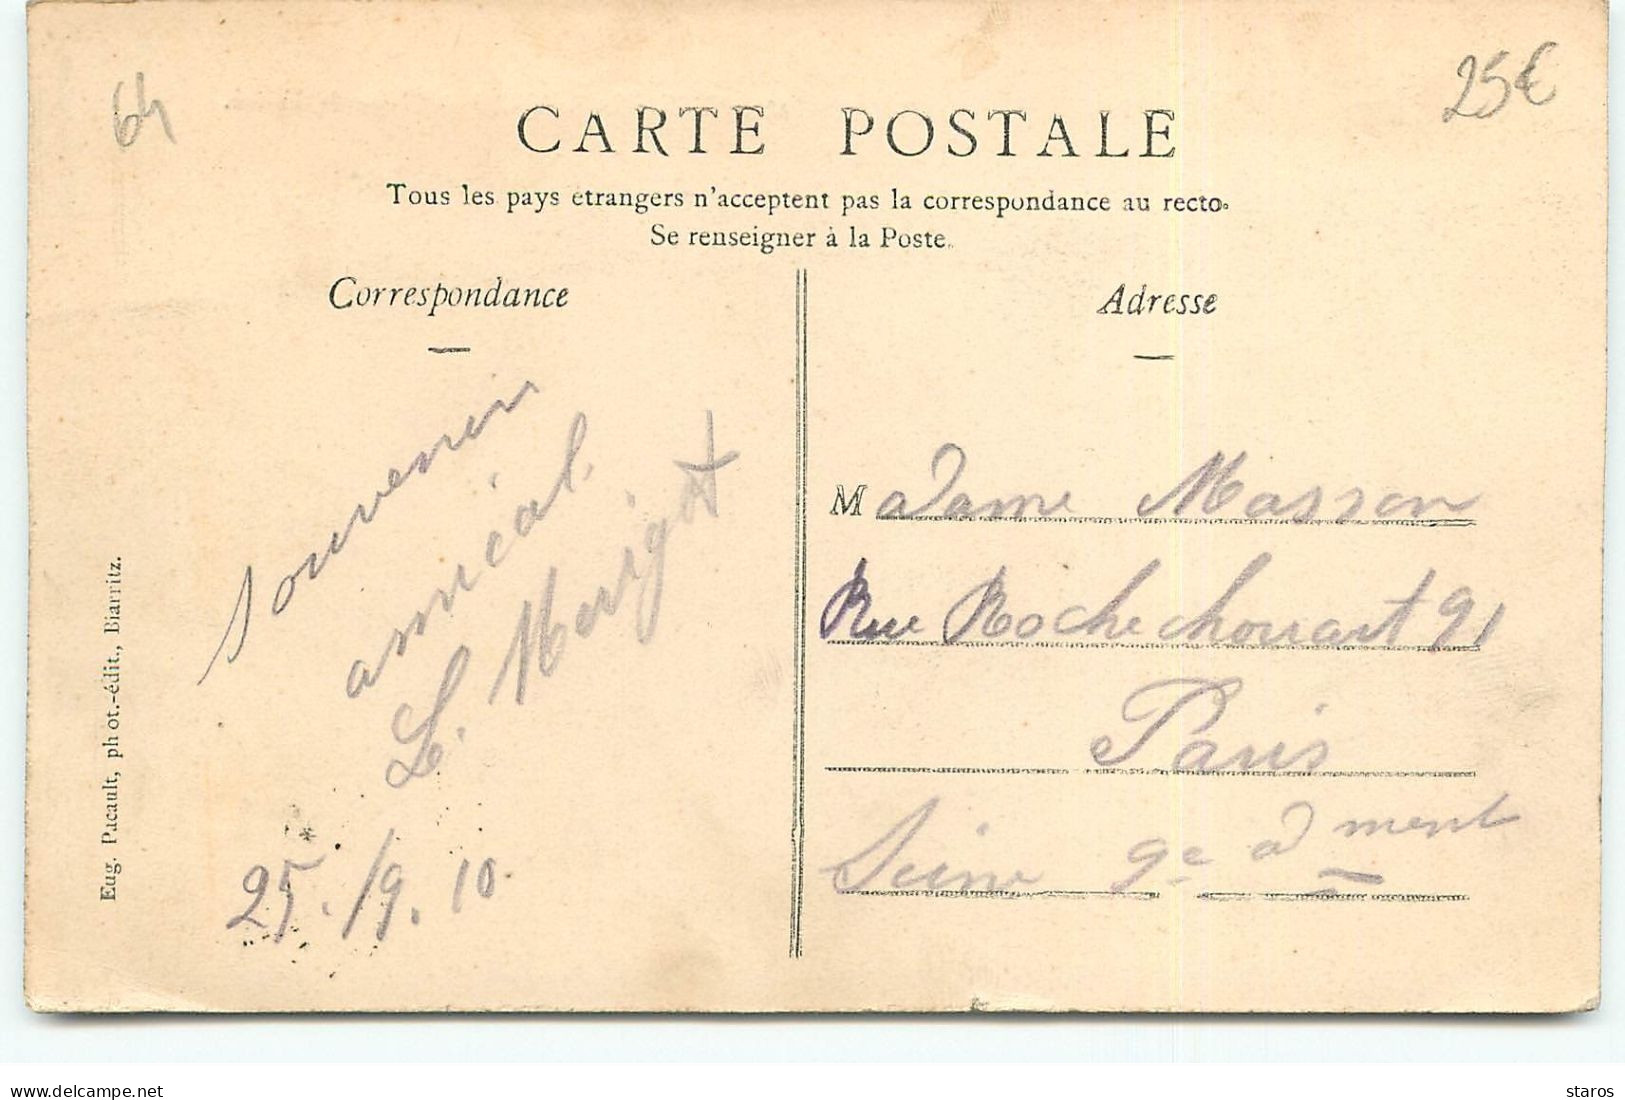 64
25€
CARTE POSTALE
Tous les pays étrangers n'acceptent pas la correspondance au recto.
Se renseigner à la Poste.
Correspondance
Adresse
souvenir
amical.
L. Merigot
25./9.10
Madame Masson
Rue Rochechouart 91
Paris
Seine 9e adment
Eug. Pacault, phot.-édit., Biarritz.
www.delcampe.net
staros